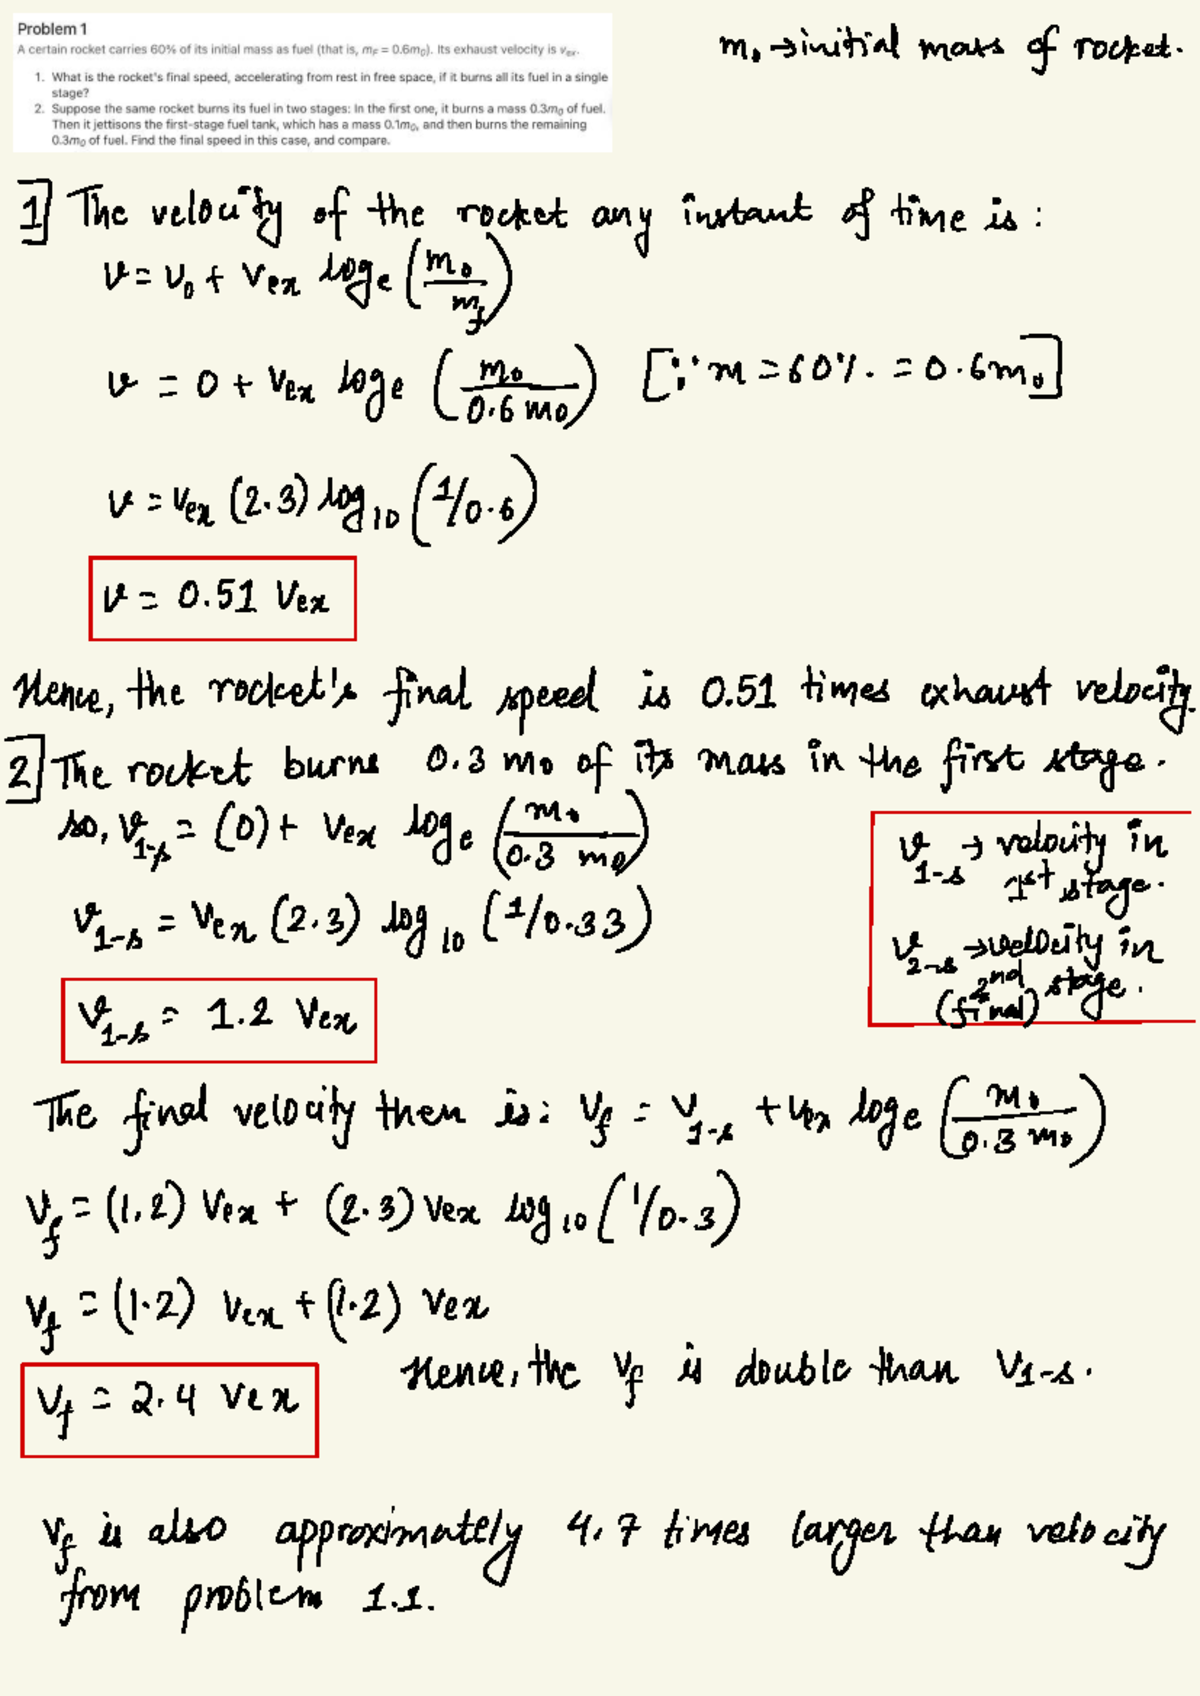 Problem 1
A certain rocket carries 60% of its initial mass as fuel (that is, mF = 0.6m0). Its exhaust velocity is vex.
1. What is the rocket's final speed, accelerating from rest in free space, if it burns all its fuel in a single
stage?
2. Suppose the same rocket burns its fuel in two stages: In the first one, it burns a mass 0.3m0 of fuel.
Then it jettisons the first-stage fuel tank, which has a mass 0.1m0, and then burns the remaining
0.3m0 of fuel. Find the final speed in this case, and compare.
m₀ → initial mass of rocket.
1] The velocity of the rocket any instant of time is :
v = v₀ + Vex loge (m₀/mf)
v = 0 + Vex loge (m₀/0.6 m₀) [∵ m = 60%. = 0.6m₀]
v = Vex (2.3) log10 (1/0.6)
v = 0.51 Vex
Hence, the rocket's final speed is 0.51 times exhaust velocity.
2] The rocket burns 0.3 m₀ of its mass in the first stage.
so, v1-s = (0) + Vex loge (m₀/0.3 m₀)
v1-s = Vex (2.3) log10 (1/0.33)
v1-s = 1.2 Vex
v1-s → velocity in
1st stage.
v2-s → velocity in
2nd stage.
(final)
The final velocity then is: Vf = V1-s + Vex loge (m₀/0.3 m₀)
Vf = (1.2) Vex + (2.3) Vex log10 (1/0.3)
Vf = (1.2) Vex + (1.2) Vex
Vf = 2.4 Vex
Hence, the Vf is double than V1-s.
Vf is also approximately 4.7 times larger than velocity
from problem 1.1.